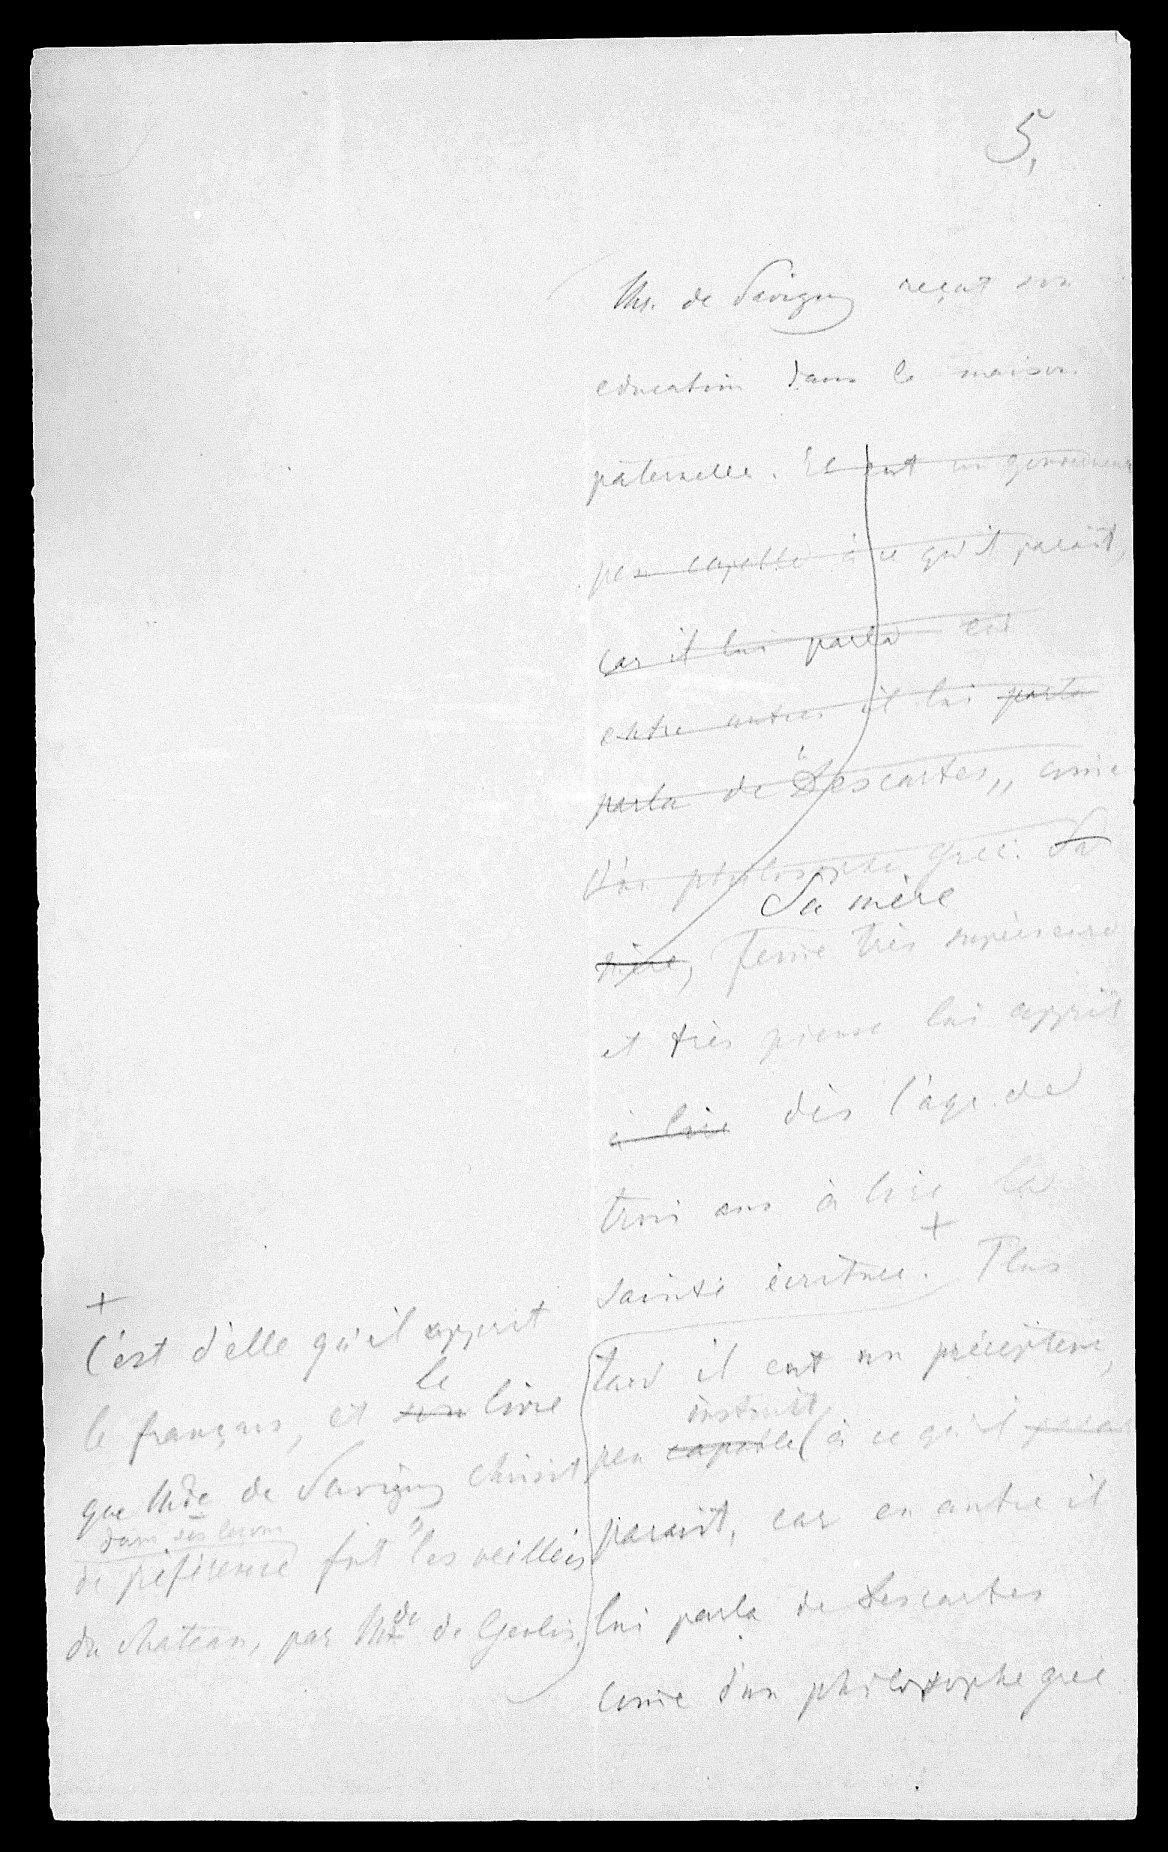 5,
Mr. de Savigny reçut son
education dans la maison
paternelle. Il eut un gouverneur
peu capable à ce qu'il parait,
car il lui parla
entre autres il lui parla
parla de Descartes,, come
d'un philosophe grec. Sa
Sa mère
mère, feme très supérieure
et très pieuse lui apprit
à lire dès l'âge de
trois ans à lire la
+
sainte écriture. Plus
tard il eut un précepteur,
instruit,
peu capable (à ce qu'il parait
parait, car en autre il
lui parla de Descartes
come d'un philosophe grec.
+
C'est d'elle qu'il apprit
le
le français, et son livre
que Mde de Savigny choisit
dans ses lecons
de préference fut "les veillées
du chateau, par Mde de Genlis.